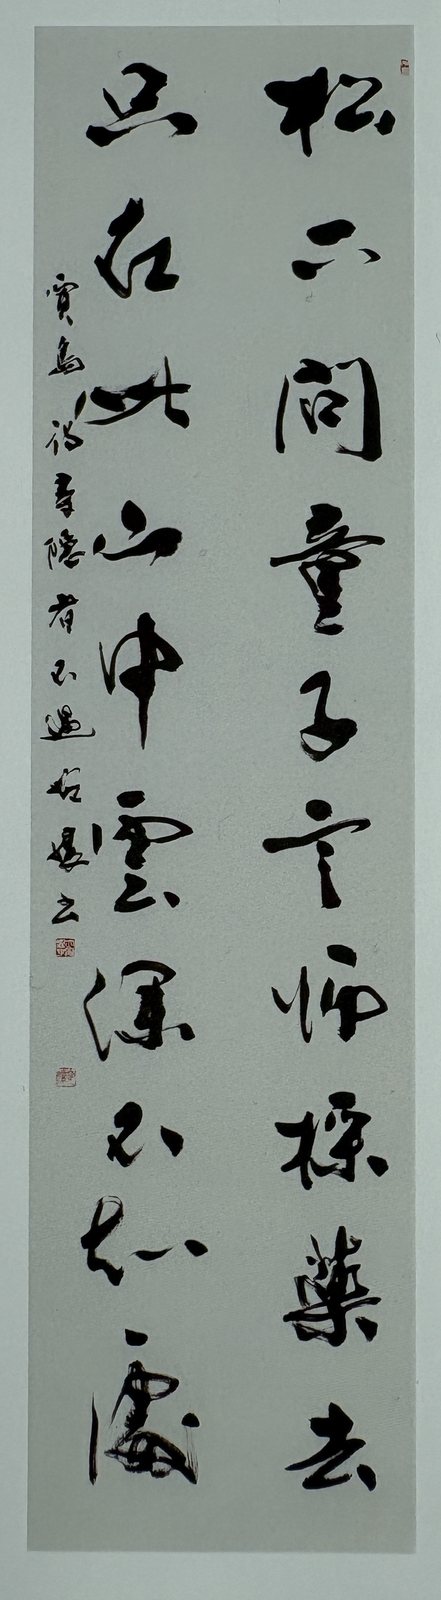 松下問童子言師採藥去
只在此山中雲深不知處
賈島詩尋隱者不遇